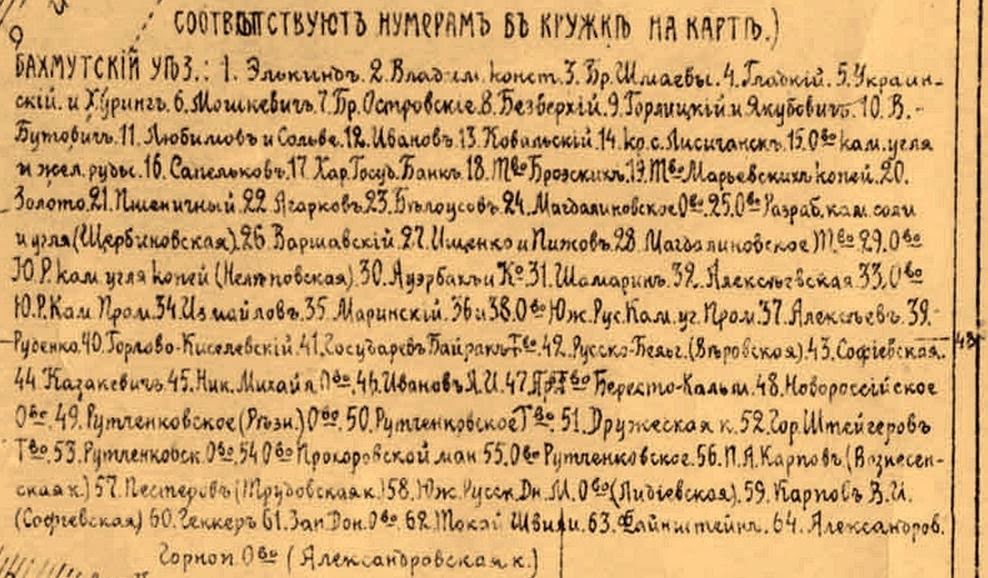 СООТВѢТСТВУЮТЪ НУМЕРАМЪ ВЪ КРУЖКѢ НА КАРТѢ.)
БАХМУТСКІЙ УѢЗ.: 1. Элькиндъ. 2. Владим. конст. 3. Бр. Шмаевы. 4. Гладкій. 5. Украин-
скій. и Хурингъ. 6. Мошкевичъ. 7. Бр. Островскіе. 8. Безверхій. 9. Горлицкій и Якубовичъ. 10. В.-
Бутовичъ. 11. Любимовъ и Сольве. 12. Ивановъ. 13. Ковальскій. 14. кр. с. Лисичанскъ. 15. Ово кам. угля
и жел. руды. 16. Сапельковъ. 17. Хар. Госуд. Банкъ. 18. Тво Брозскихъ. 19. Тво Марьевскихъ копей. 20.
Золото. 21. Пшеничный 22. Агарковъ. 23. Бѣлоусовъ. 24. Магдалиновское Ово. 25. Ово Разраб. кам. соли
и угля (Щербиновская). 26. Варшавскій. 27. Ищенко и Пижовъ. 28. Магдалиновское Тво. 29. Ово
Ю.Р. кам. угля копей (Нелѣповская). 30. Ауэрбахъ и Ко. 31. Шамаринъ. 32. Алексѣевская 33. Ово
Ю.Р. Кам. Пром. 34. Измайловъ. 35. Маринскій. 36 и 38. Ово Юж. Рус. Кам. уг. Пром. 37. Алексѣевъ. 39.-
Руденко. 40. Горлово-Киселевскій 41. Государевъ Байракъ Тво. 42. Русско-Бельг. (Вѣровская). 43. Софіевская.
44. Казакевичъ. 45. Ник. Михайл. Ово. 46. Ивановъ Я.И. 47. Тво Бересто-Кальм. 48. Новороссійское
Ово. 49. Рутченковское (Рѣзн.) Ово. 50. Рутченковское Тво. 51. Дружеская к. 52. Гор. Штейгеровъ
Тво. 53. Рутченковск. Ово. 54 Ово Прохоровской ман 55. Ово Рутченковское. 56. П.А. Карповъ (Вознесен-
ская к.) 57. Нестеровъ (Трудовская к.) 58. Юж. Русск. Дн. М. Ово (Лидіевская). 59. Карповъ В.И.
(Софіевская) 60. Геккеръ 61. Зап. Дон. Ово. 62. Токай Швили. 63. Файнштейнъ. 64. Александров.
Горноп. Ово (Александровская к.)